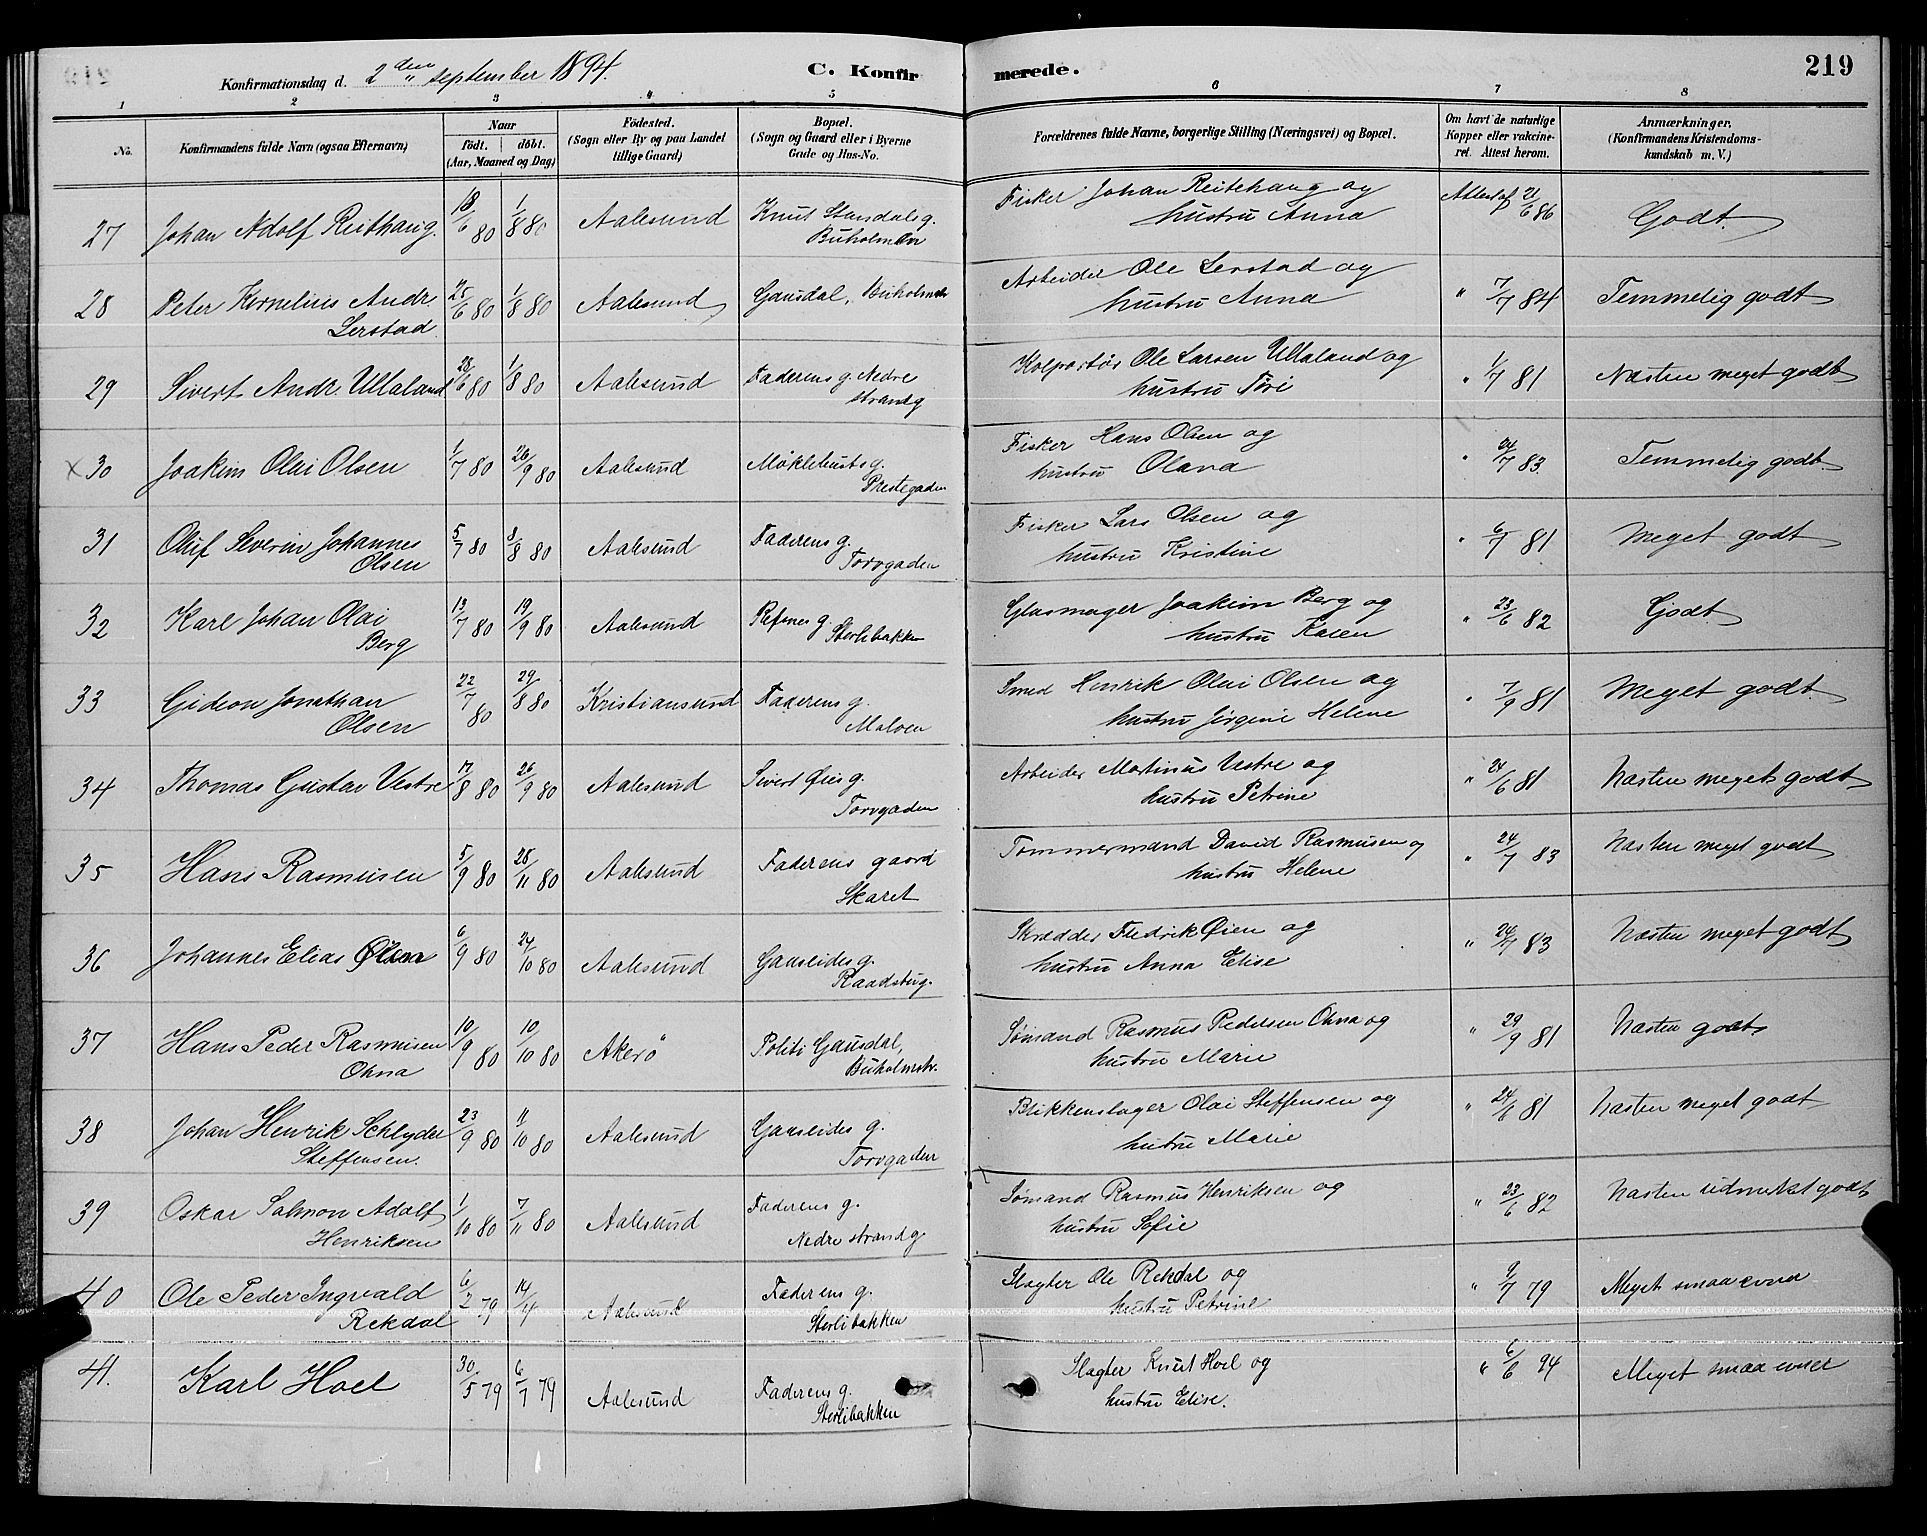 Konfirmationsdag d. 2den september 1894.
C. Konfirmerede.
219
1 2 3 4 5 6 7 8
No.
Konfirmandens fulde Navn (ogsaa Efternavn)
Naar
født. døbt.
(Aar, Maaned og Dag)
Fødested.
(Sogn eller By og paa Landet
tillige Gaard)
Bopæl.
(Sogn og Gaard eller i Byerne
Gade og Hus-No.
Forældrenes fulde Navne, borgerlige Stilling (Næringsvei) og Bopæl.
Om havt de naturlige
Kopper eller vakcine-
ret. Attest herom.
Anmærkninger.
(Konfirmandens Kristendoms-
kundskab m. V.)
27 Johan Adolf Reithaug. 18/6 80 1/8 80 Aalesund Knut Standals g. Fisker Johan Reitehaug og Attest af 21/6 86 Godt.
Buholmen hustru Anna
28 Peter Kornelius Andr. 25/6 80 1/8 80 Aalesund Gausdal, Buholmstr Arbeider Ole Lerstad og " 7/7 84 Temmelig godt
Lerstad hustru Anna
29 Sivert Andr. Ullaland 28/6 80 1/8 80 Aalesund Faderens g. Nedre Kolportør Ole Larsen Ullaland og " 1/7 81 Næsten meget godt
strandg hustru Tori
x 30 Joakim Olai Olsen 1/7 80 26/9 80 Aalesund Møklebusts g. Fisker Hans Olsen og " 24/7 83. Temmelig godt
Prestegaden hustru Olava
31 Oluf Severin Johannes 5/7 80 8/8 80 Aalesund Faderens g. Fisker Lars Olsen og " 6/7 81 Meget godt
Olsen Torvgaden hustru Kristine
32 Karl Johan Olai 13/7 80 19/9 80 Aalesund Refsnes g. Glasmager Joakim Berg og " 23/6 82 Godt
Berg Storlibakken hustru Karen
33 Gideon Jonathan 22/7 80 29/8 80 Kristiansund Faderens g. Smed Henrik Olai Olsen og " 7/9 81 Meget godt
Olsen Maloen hustru Jørgine Helene
34 Thomas Gustav Vestre 17/8 80 26/9 80 Aalesund Sivert Øies g. Arbeider Martinus Vestre og " 21/6 81 Næsten meget godt
Torvgaden hustru Petrine
35 Hans Rasmusen 5/9 80 28/11 80 Aalesund Faderens gaard Tømmermand David Rasmusen og " 24/7 83 Næsten meget godt
Skaret hustru Helene
36 Johannes Elias Øien 6/9 80 24/10 80 Aalesund Ganseides g. Skrædder Fredrik Øien og " 24/7 83 Næsten meget godt
Raadstug. hustru Anna Elise
37 Hans Peder Rasmusen 10/9 80 10/10 80 Akerø Politi Gausdal, Sømand Rasmus Pedersen Ohna og " 29/9 81 Næsten godt
Ohna Buholmstr. hustru Marie
38 Johan Henrik Schlyder 23/9 80 11/10 80 Aalesund Ganseides g. Blikkenslager Olai Steffensen og " 24/6 81 Næsten meget godt
Steffensen. Torvgaden hustru Marie
39 Oskar Salmon Adolf 1/10 80 7/11 80 Aalesund Faderens g. Sømand Rasmus Henriksen og " 23/6 82 Næsten udmerket godt
Henriksen Nedre strandg hustru Sofie
40 Ole Peder Ingvald 6/2 79 14/4 Aalesund Faderens g. Slagter Ole Rekdal og " 9/7 79 Meget smaa evner
Rekdal Storlibakken hustru Petrine
41. Karl Hoel 30/5 79 6/7 79 Aalesund Faderens g. Slagter Knut Hoel og " 6/6 94 Meget smaa evner
Storlibakken hustru Elise.